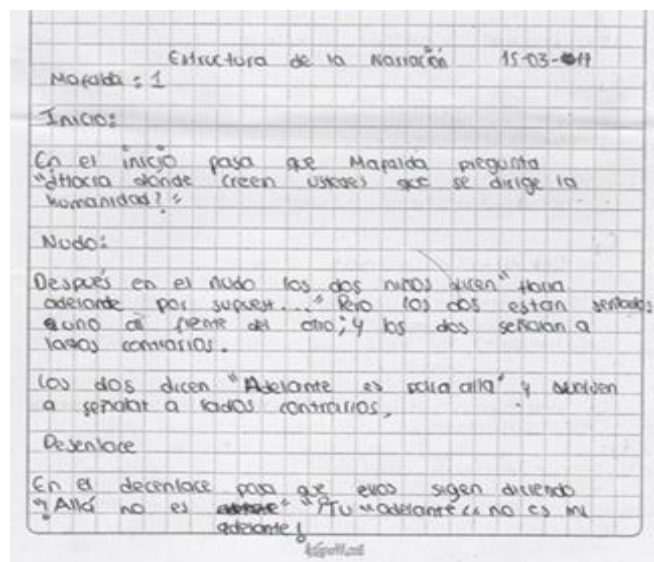 Estructura de la Narración 15-03-17
Mafalda : 1
Inicio:
En el inicio pasa que Mafalda pregunta
"¿Hacia donde creen ustedes que se dirige la
humanidad? "
Nudo:
Después en el nudo los dos niños dicen " Hacia
adelante por supuest... " Pero los dos estan sentados
uno al frente del otro; y los dos señalan a
lados contrarios.
Los dos dicen "Adelante es para alla" y
a señalar a lados contrarios.
Desenlace
En el decenlace pasa que ellos sigen diciendo
"¡Allá no es " "¡Tu "adelante" no es mi
adelante!